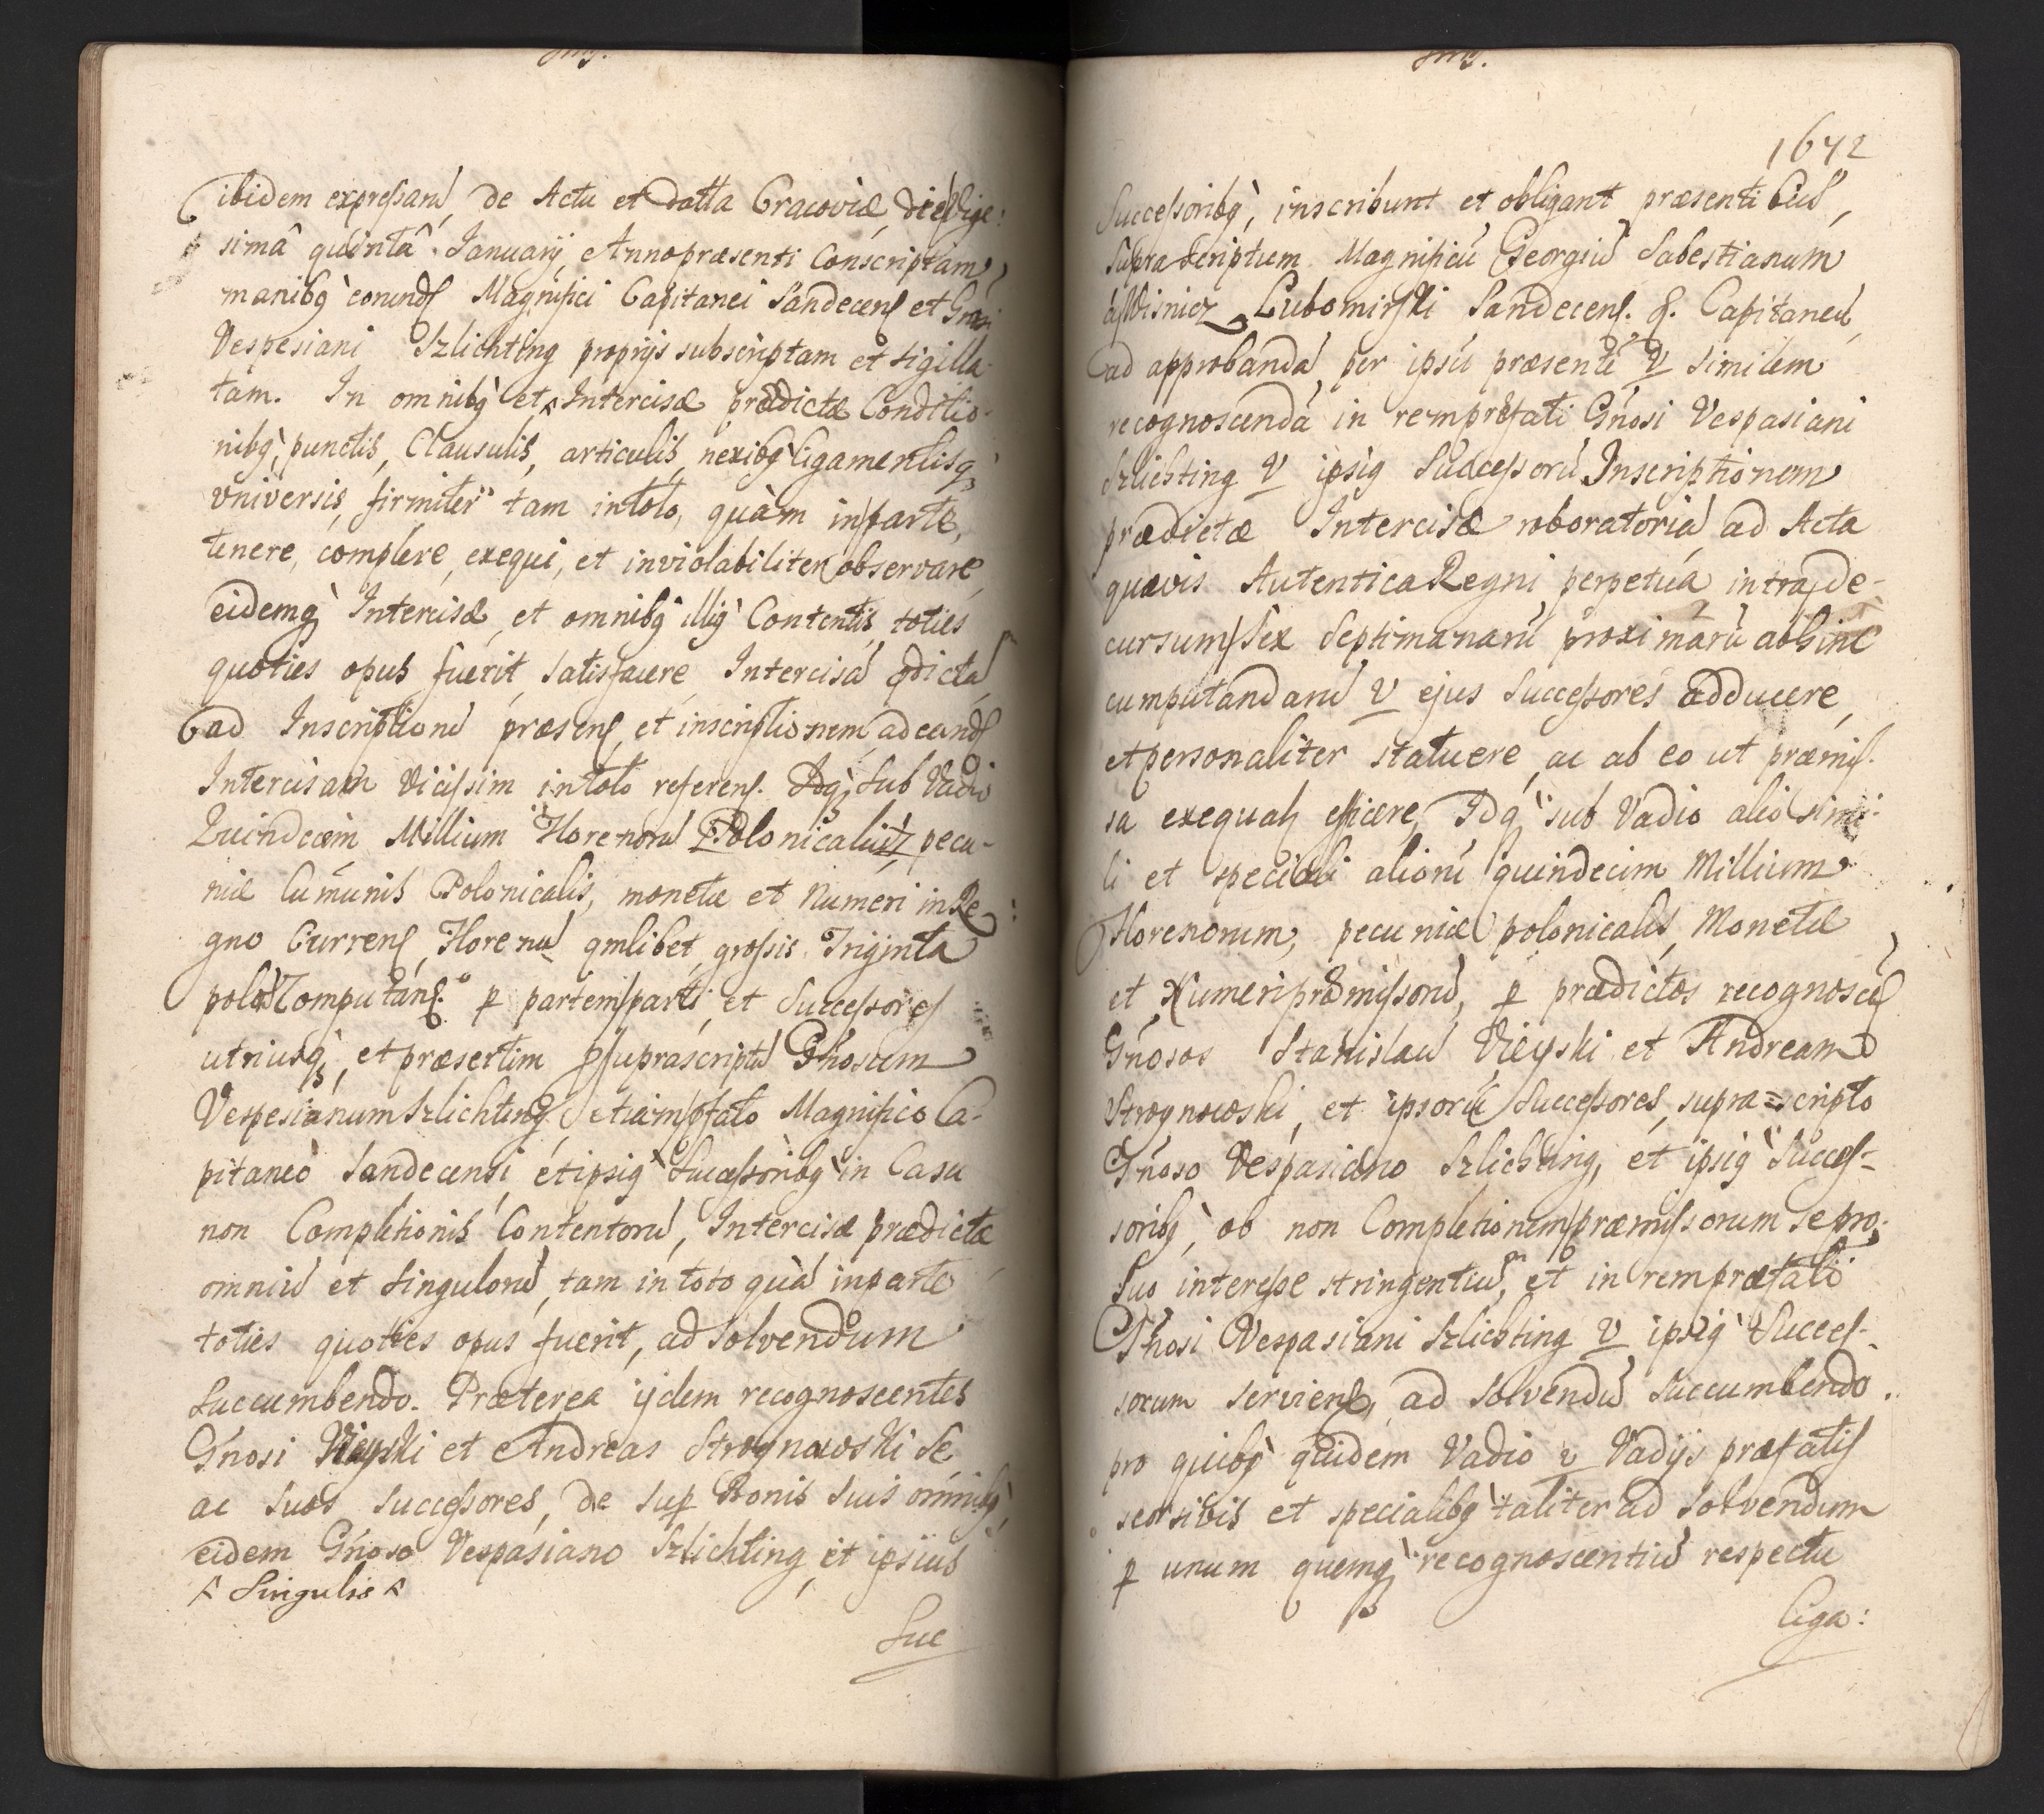 ibidem expressarũ, de Actu et datta Cracoviæ, die Vige:
simâ quintâ Januarÿ Anno præsenti Conscriptam,
manibq̀ eorundẽ Magnifici Capitanei Sandecenſ et Gnosi
Vespesiani Szlichting proprijs subscriptam et sigilla
tam. In omnibq̀ et ^ Intercisæ prædictæ Conditio-
nibq̀, punctis, Clausulis, articulis, nexibq̀ ligamentisq̀
vniversis, firmiter tam in toto, quàm in parte,
tenere, complere, exequi, et inviolabiliter observare,
eidemq̀ Intercisæ, et omnibq̀ illiq̀ Contentis, toties
quoties opus fuerit, satisfacere, Intercisã p̃dictã
ad Inscriptionẽ præsenſ, et inscriptionem, ad eandẽ
Intercisam vicissim in toto referenſ. Idq̀, sub Vadio
Quindecem Millium Florenorũ Polonicaliũ, pecu-
niæ Cũmunis Polonicalis, monetæ et Numeri in Re-
gno Currenſ, Florenũ qmlibet, grossis Triginta
polõ Computanſ. p partem parti, et Successores
utriusq̀, et præsertim p suprascriptũ Gnosum
Vespesianum Szlichting, etiam p̃fato Magnifico Ca-
pitaneo Sandecensi, et ipsiq̀ Successoribq̀ in Casu
non Completionis Contentorũ, Intercisæ prædictæ
omniũ et singulorũ, tam in toto quã in parte
toties quoties opus fuerit, ad solvendum
succumbendo. Præterea ijdem recognoscentes
Gńosi Vieyski et Andreas Strognowski se
ac suos successores, de sup Bonis suis omnibq̀,
eidem Gńoso Vespasiano Szlichting, et ipsius
^ Singulis ^
Suc
1672
Successoribq̀, inscribunt et obligant præsentibus,
supra scriptum Magnificũ Georgiũ Sabestianum
à Wisnicz Lubomirski Sandecenſ. &. Capitaneũ,
ad approbandã per ipsũ præsentẽ v similem
recognoscendã in rem præfati Gńosi Vespasiani
Szlichting v ipsiq̀ Successorũ Inscriptionem
prædictæ Intercisæ roboratoriã, ad Acta
quævis Autentica Regni, perpetuã, intra de-
cursum sex septimanarũ proximarũ abhinc
cumputandarũ v ejus Successores adducere,
et personaliter statuere, ac ab eo ut præmiſ-
sa exequatſ efficere, Idq̀ sub Vadio alio simi-
li et speciali aliorũ quindecim Millium
Florenorum, pecuniæ polonicalis, Monetæ
et Numeri præmissorũ, p prædictos recognoscẽ
Gńosos Stanislaũ Vieyski et Andream
Strognowski, et ipsorũ Successores, supra=scripto
Gńoso Vespasiano Szlichting, et ipsiq̀ Succeſ-
soribq̀, ob non Completionem præmissorum se pro
suo interesse stringentiũ, et in rem præfati
Gńosi Vespasiani Szlichting v ipsiq̀ Succeſ-
sorum servienſ, ad solvendũ succumbendo.
pro quibq̀ quidem Vadio v Vadijs præfatis
seorsivis et specialibq̀ taliter ad solvendum
p unum quemq̀ recognoscentiũ respectu
liga: